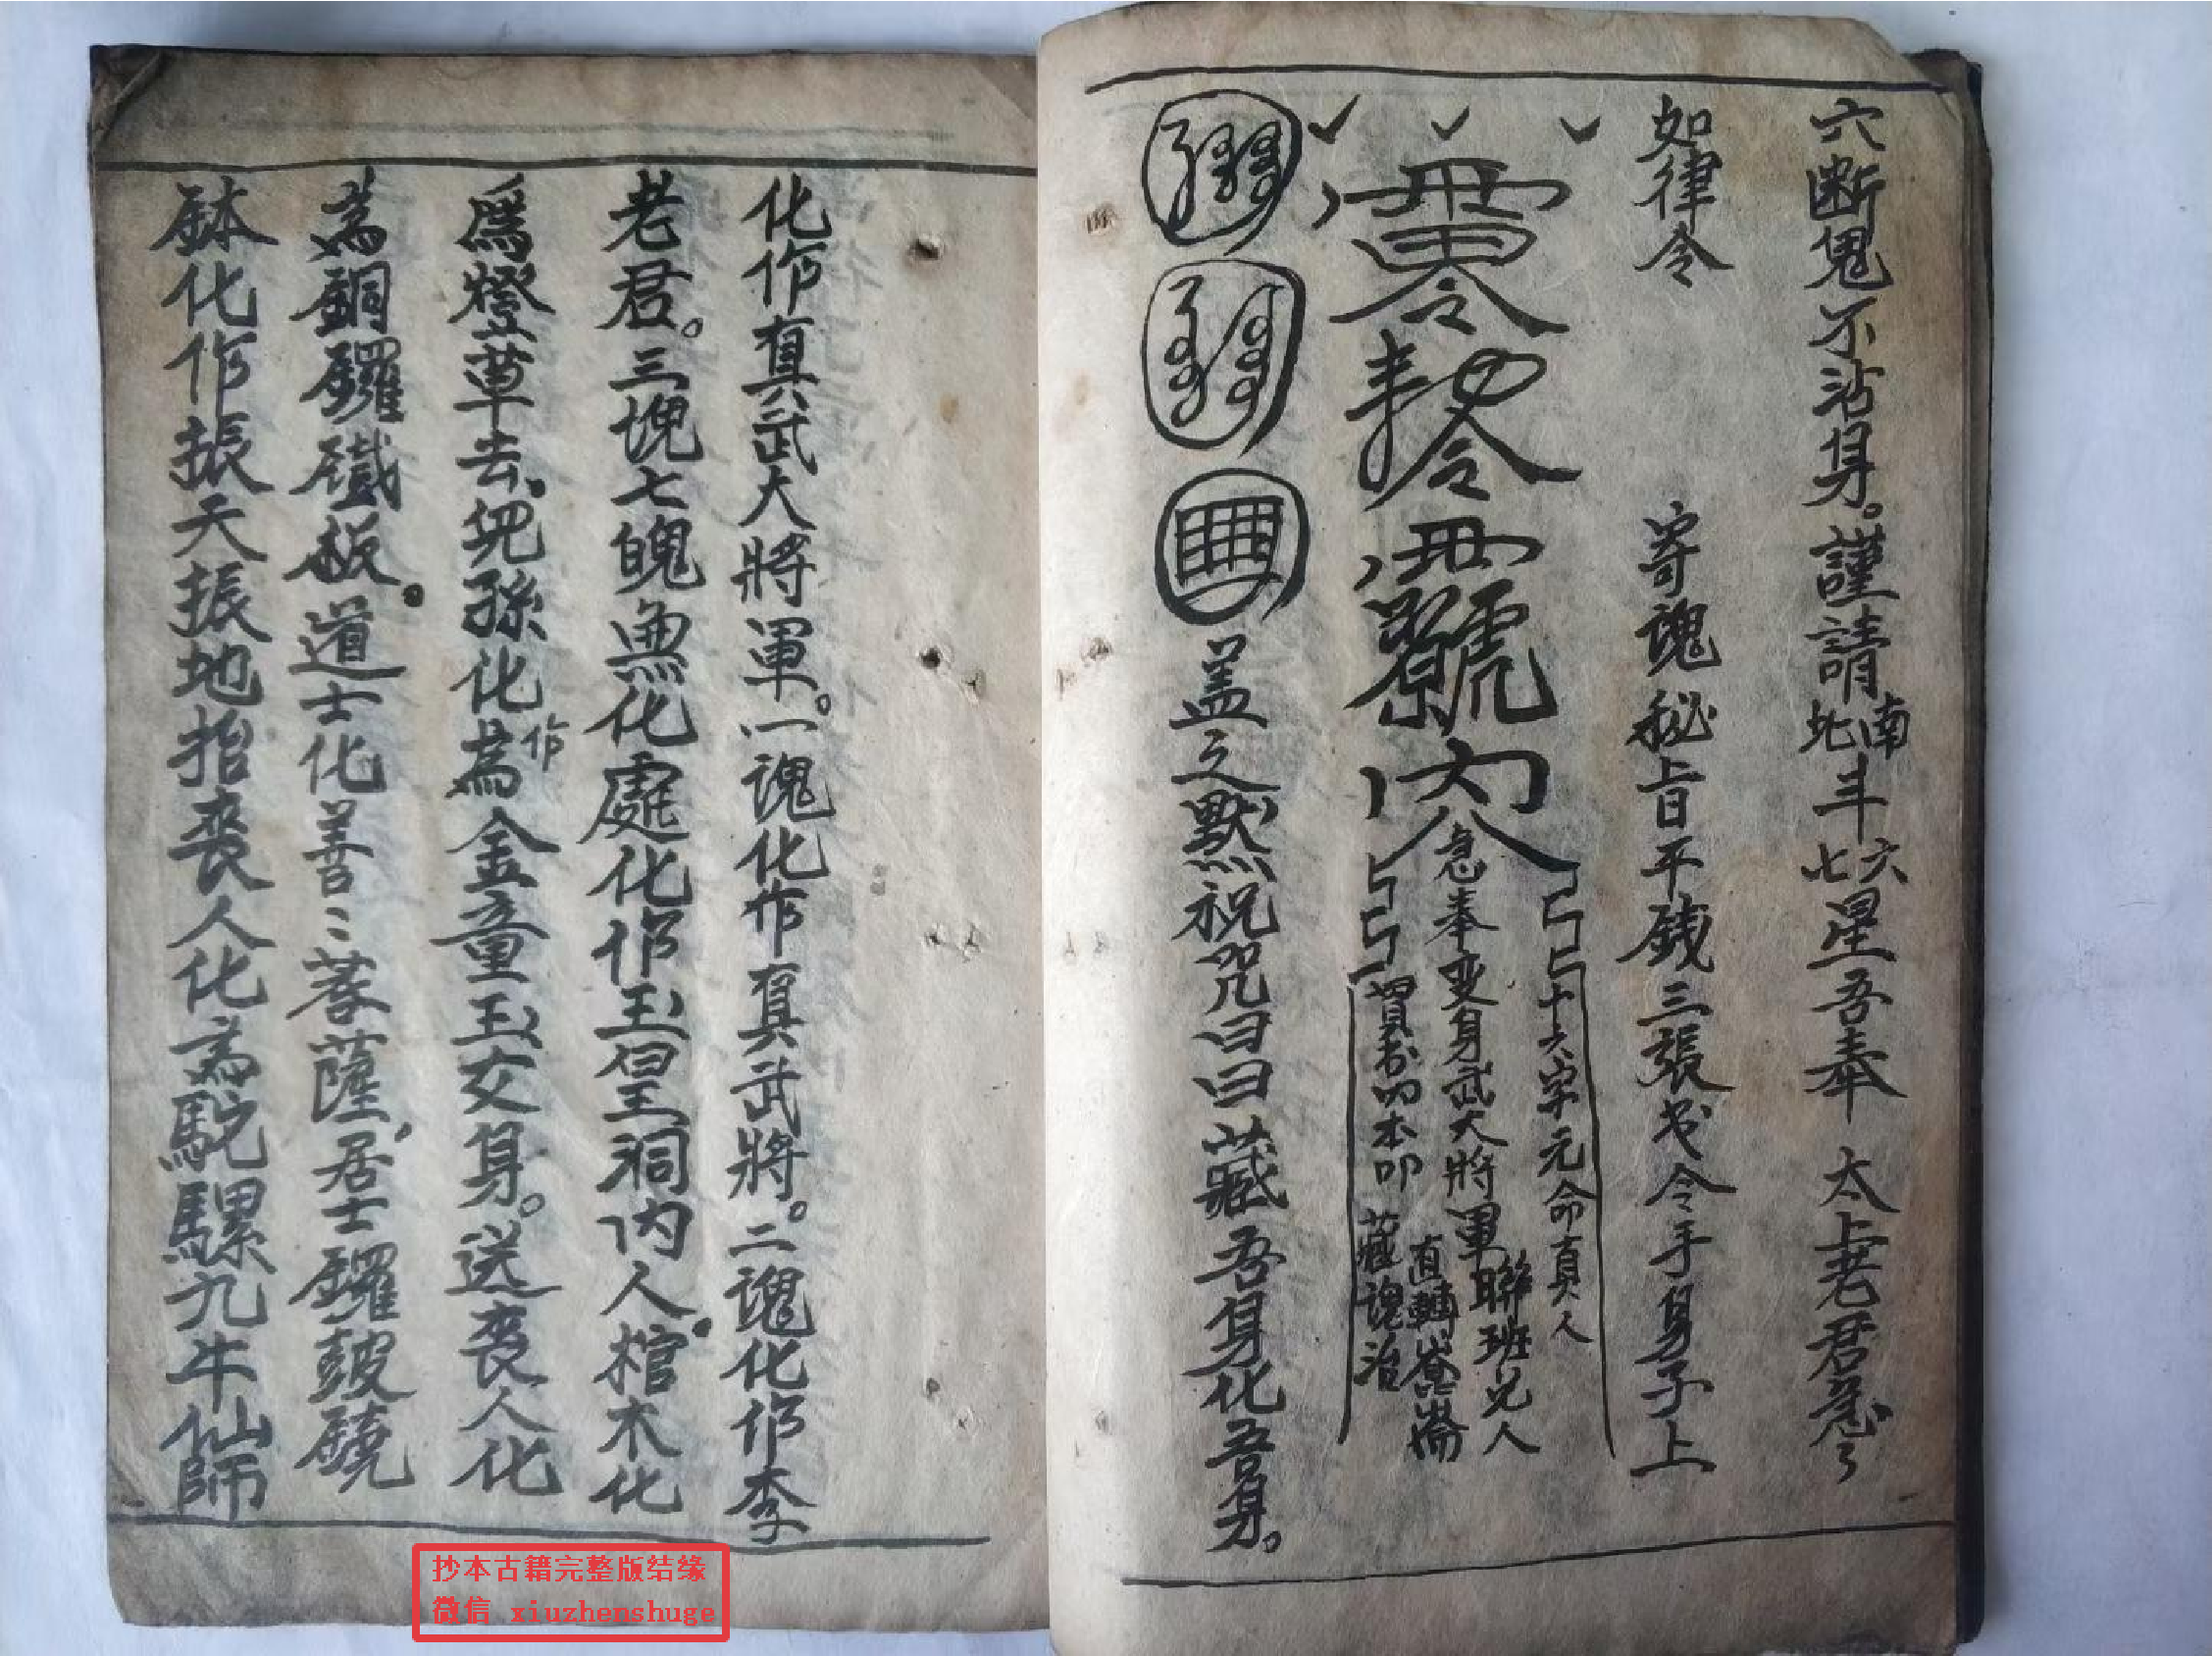 六断鬼不沾身。謹請南北斗六七星吾奉 太上老君急〻
如律令 寄魂秘旨平銭三張书令手身子上
十六字元命真人
急奉变身武大將軍聯班兄人
直轉崑崙
藏魂治
盖之默祝咒曰曰藏吾身化吾身。
化作真武大將軍。一魂化作真武將。二魂化作李
老君。三塊七魄無化處化作玉皇洞内人。棺木化
爲燈草去。兒孫化為作金童玉女身。送喪人化
為銅鑼鐵板。道士化善〻菩薩。居士鑼鼓鐃
鉢化作振天振地抬喪人化為駝騾九牛仙師
抄本古籍完整版结缘
微信 xiuzhenshuge